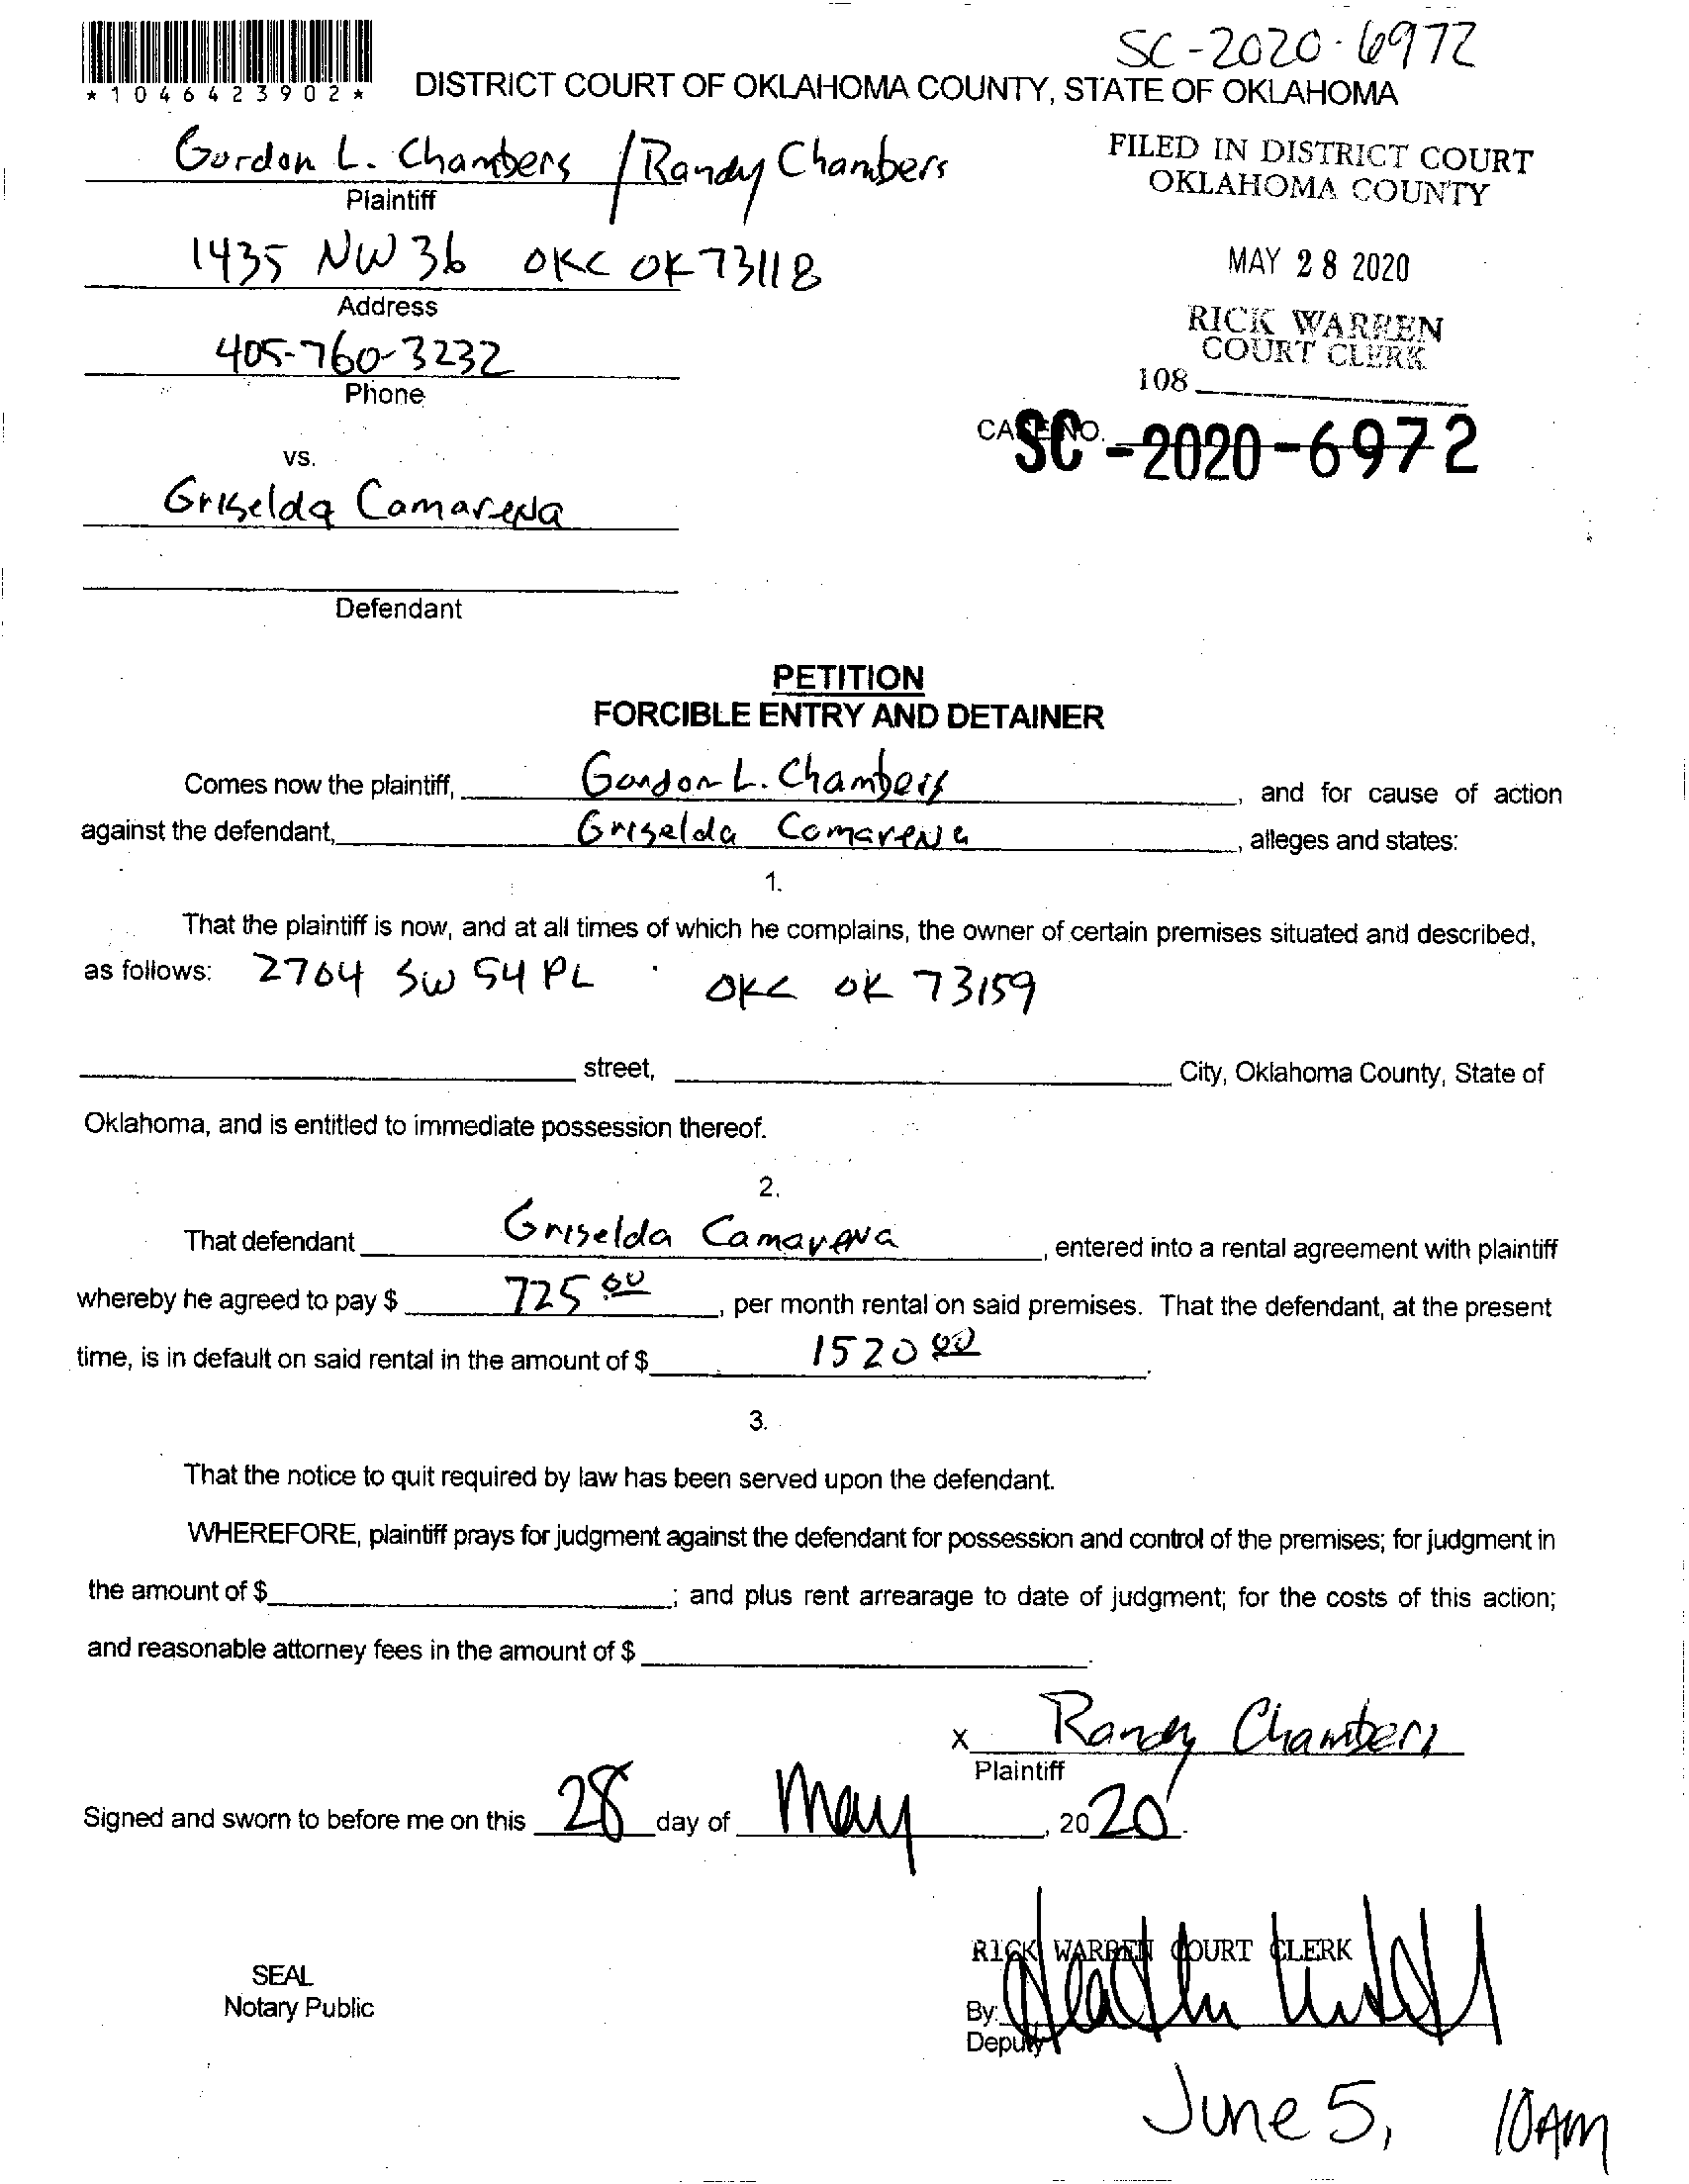 SC-2020-6972
*1046423902*
DISTRICT COURT OF OKLAHOMA COUNTY, STATE OF OKLAHOMA
Gordon L. Chambers / Randy Chambers
Plaintiff
FILED IN DISTRICT COURT
OKLAHOMA COUNTY
1435 NW 36 OKC OK 73118
Address
MAY 28 2020
405-760-3232
Phone
RICK WARREN
COURT CLERK
108
CASE NO. SC-2020-6972
vs.
Griselda Camarena
Defendant
PETITION
FORCIBLE ENTRY AND DETAINER
Comes now the plaintiff, Gordon L. Chambers, and for cause of action
against the defendant, Griselda Camarena, alleges and states:
1.
That the plaintiff is now, and at all times of which he complains, the owner of certain premises situated and described,
as follows: 2704 SW 54 PL OKC OK 73159
street, City, Oklahoma County, State of
Oklahoma, and is entitled to immediate possession thereof.
2.
That defendant Griselda Camarena, entered into a rental agreement with plaintiff
whereby he agreed to pay $ 725 00, per month rental on said premises. That the defendant, at the present
time, is in default on said rental in the amount of $ 1520 00.
3.
That the notice to quit required by law has been served upon the defendant.
WHEREFORE, plaintiff prays for judgment against the defendant for possession and control of the premises; for judgment in
the amount of $ ; and plus rent arrearage to date of judgment; for the costs of this action;
and reasonable attorney fees in the amount of $ .
X Randy Chambers
Plaintiff
Signed and sworn to before me on this 28 day of May, 2020.
RICK WARREN COURT CLERK
SEAL
Notary Public
By:
Deputy
June 5, 10AM